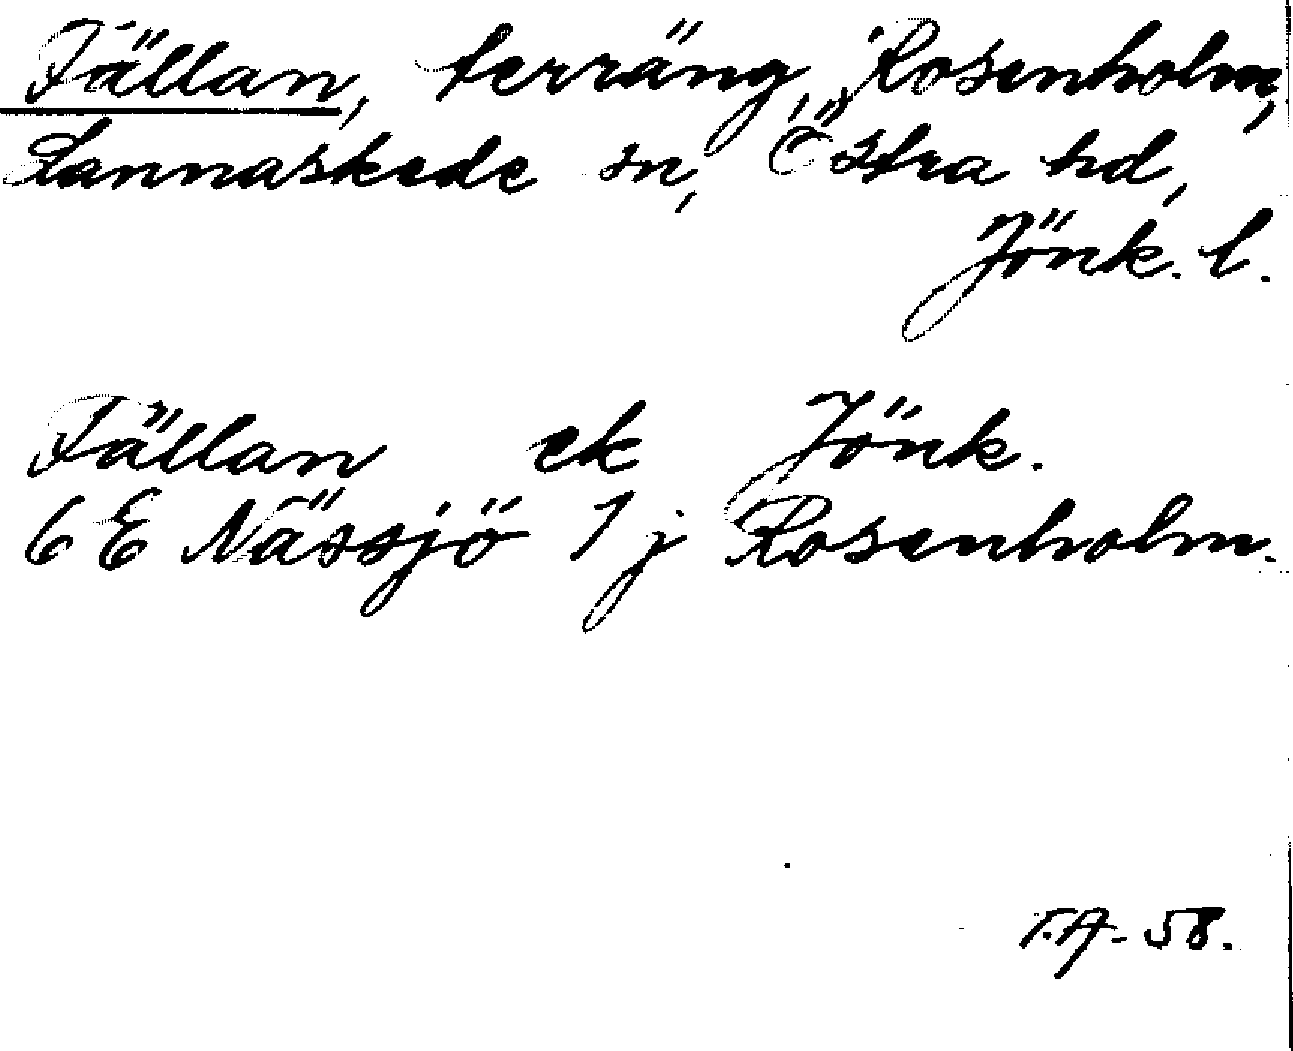 Fällan, terräng, Rosenholm,
Lannaskede sn, Östra hd,
Jönk. l.
Fällan ek Jönk.
6 E Nässjö 1 j Rosenholm.
T.A. 58.